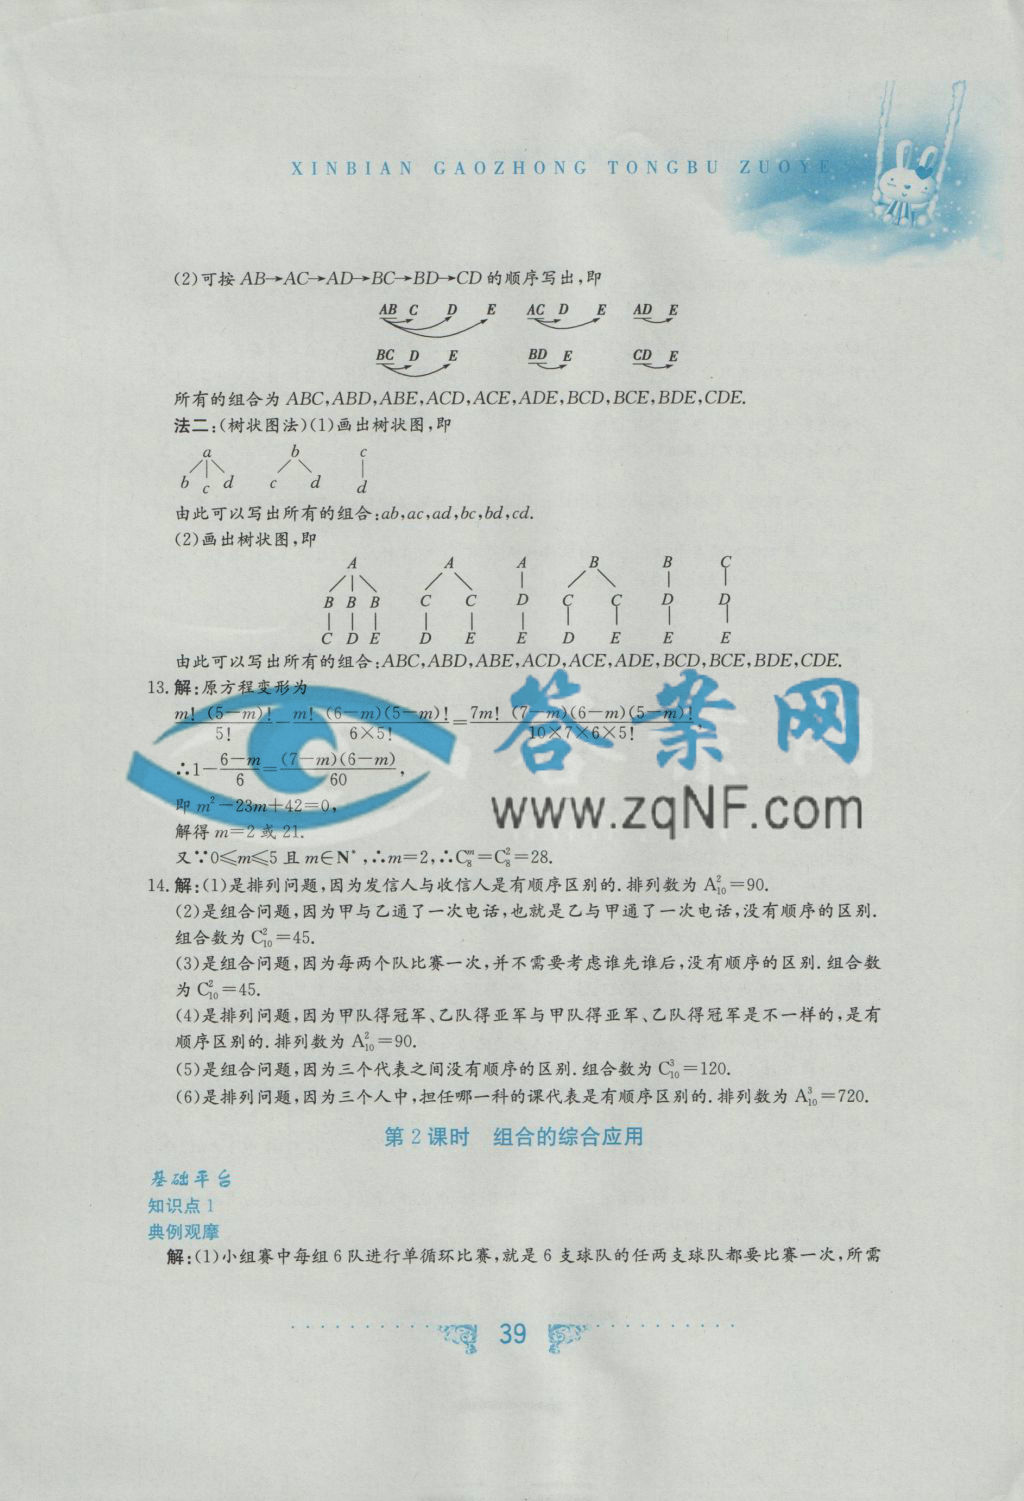 XINBIAN GAOZHONG TONGBU ZUOYE
(2)可按 AB→AC→AD→BC→BD→CD 的顺序写出,即
AB C D E AC D E AD E
BC D E BD E CD E
所有的组合为 ABC,ABD,ABE,ACD,ACE,ADE,BCD,BCE,BDE,CDE.
法二:(树状图法)(1)画出树状图,即
a b c
b c d c d d
由此可以写出所有的组合:ab,ac,ad,bc,bd,cd.
(2)画出树状图,即
A A A B B C
B B B C C D C C D D
C D E D E E D E E E
由此可以写出所有的组合:ABC,ABD,ABE,ACD,ACE,ADE,BCD,BCE,BDE,CDE.
13. 解:原方程变形为
m!(5−m)!/5! − m!(6−m)(5−m)!/6×5! = 7m!(7−m)(6−m)(5−m)!/10×7×6×5!,
∴1−(6−m)/6=(7−m)(6−m)/60,
即 m²−23m+42=0,
解得 m=2 或 21.
又∵0⩽m⩽5 且 m∈N*,∴m=2,∴C₈ᵐ=C₈²=28.
14. 解:(1)是排列问题,因为发信人与收信人是有顺序区别的.排列数为 A₁₀²=90.
(2)是组合问题,因为甲与乙通了一次电话,也就是乙与甲通了一次电话,没有顺序的区别.
组合数为 C₁₀²=45.
(3)是组合问题,因为每两个队比赛一次,并不需要考虑谁先谁后,没有顺序的区别.组合数
为 C₁₀²=45.
(4)是排列问题,因为甲队得冠军、乙队得亚军与甲队得亚军、乙队得冠军是不一样的,是有
顺序区别的.排列数为 A₁₀²=90.
(5)是组合问题,因为三个代表之间没有顺序的区别.组合数为 C₁₀³=120.
(6)是排列问题,因为三个人中,担任哪一科的课代表是有顺序区别的.排列数为 A₁₀³=720.
第 2 课时 组合的综合应用
基础平台
知识点 1
典例观摩
解:(1)小组赛中每组 6 队进行单循环比赛,就是 6 支球队的任两支球队都要比赛一次,所需
39
答案网
www.zqNF.com